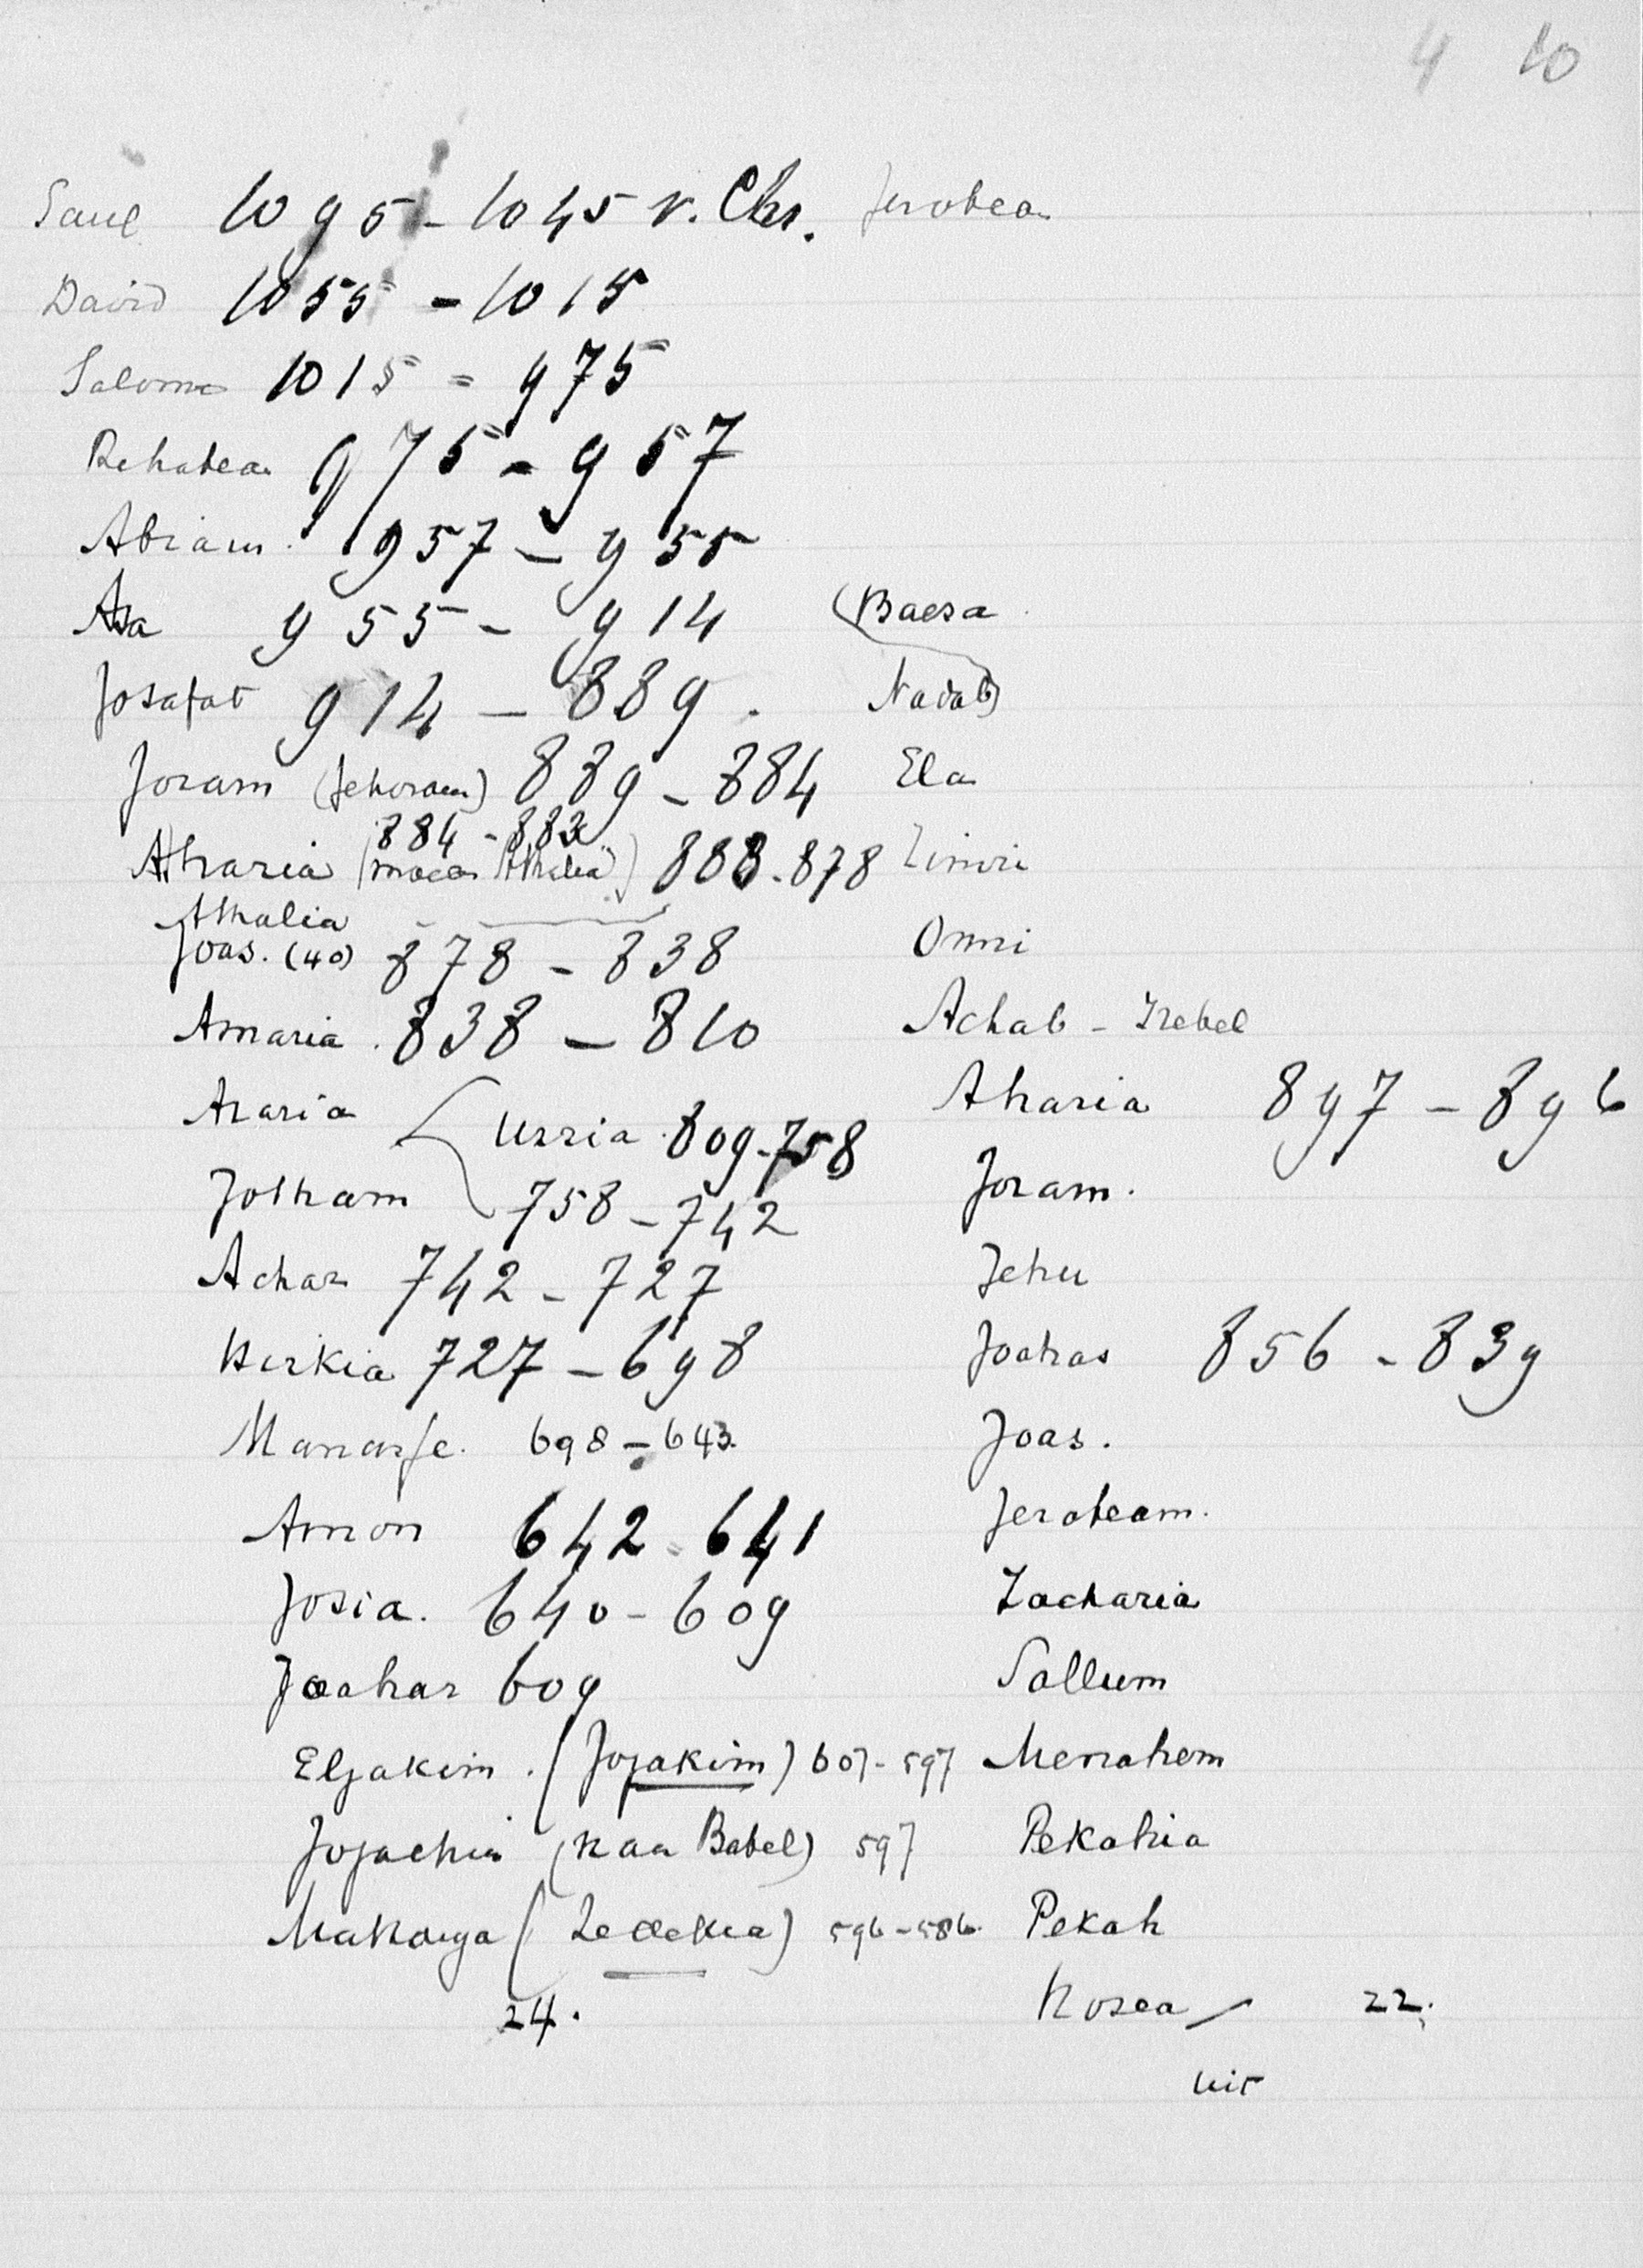 4 10
Saul 1095 - 1045 v. Chr. Jerobea
David 1055 - 1015
Salomo 1015 = 975
Rehabea 975 - 957
Abiam. 957 - 955
Asa 955 - 914 (Baesa
Josafat 914 - 889. Nadab)
Joram (Jehoram) 889 - 884 Ela
884 - 883
Ahazia (moeder Athalia) 883-878 Zimri
Athalia
Joas. (40) 878 - 838 Omri
Amazia. 838 - 810 Achab - Izebel
Azaria Uzzia. 809-758 Ahazia 897 - 896
Jotham 758 - 742 Joram.
Achaz 742 - 727 Jehu
Hizkia 727 - 698 Joahas 856 - 839
Manasse. 698 - 643. Joas.
Amon 642 - 641 Jerobeam.
Josia. 640 - 609 Zacharia
Joahaz 609 Sallum
Eljakim. (Jojakim) 607 - 597 Menahem
Jojachin (naa Babel) 597 Pekahia
Mattanja (Zedekia) 596-586. Pekah
24. Hosea 22.
uit